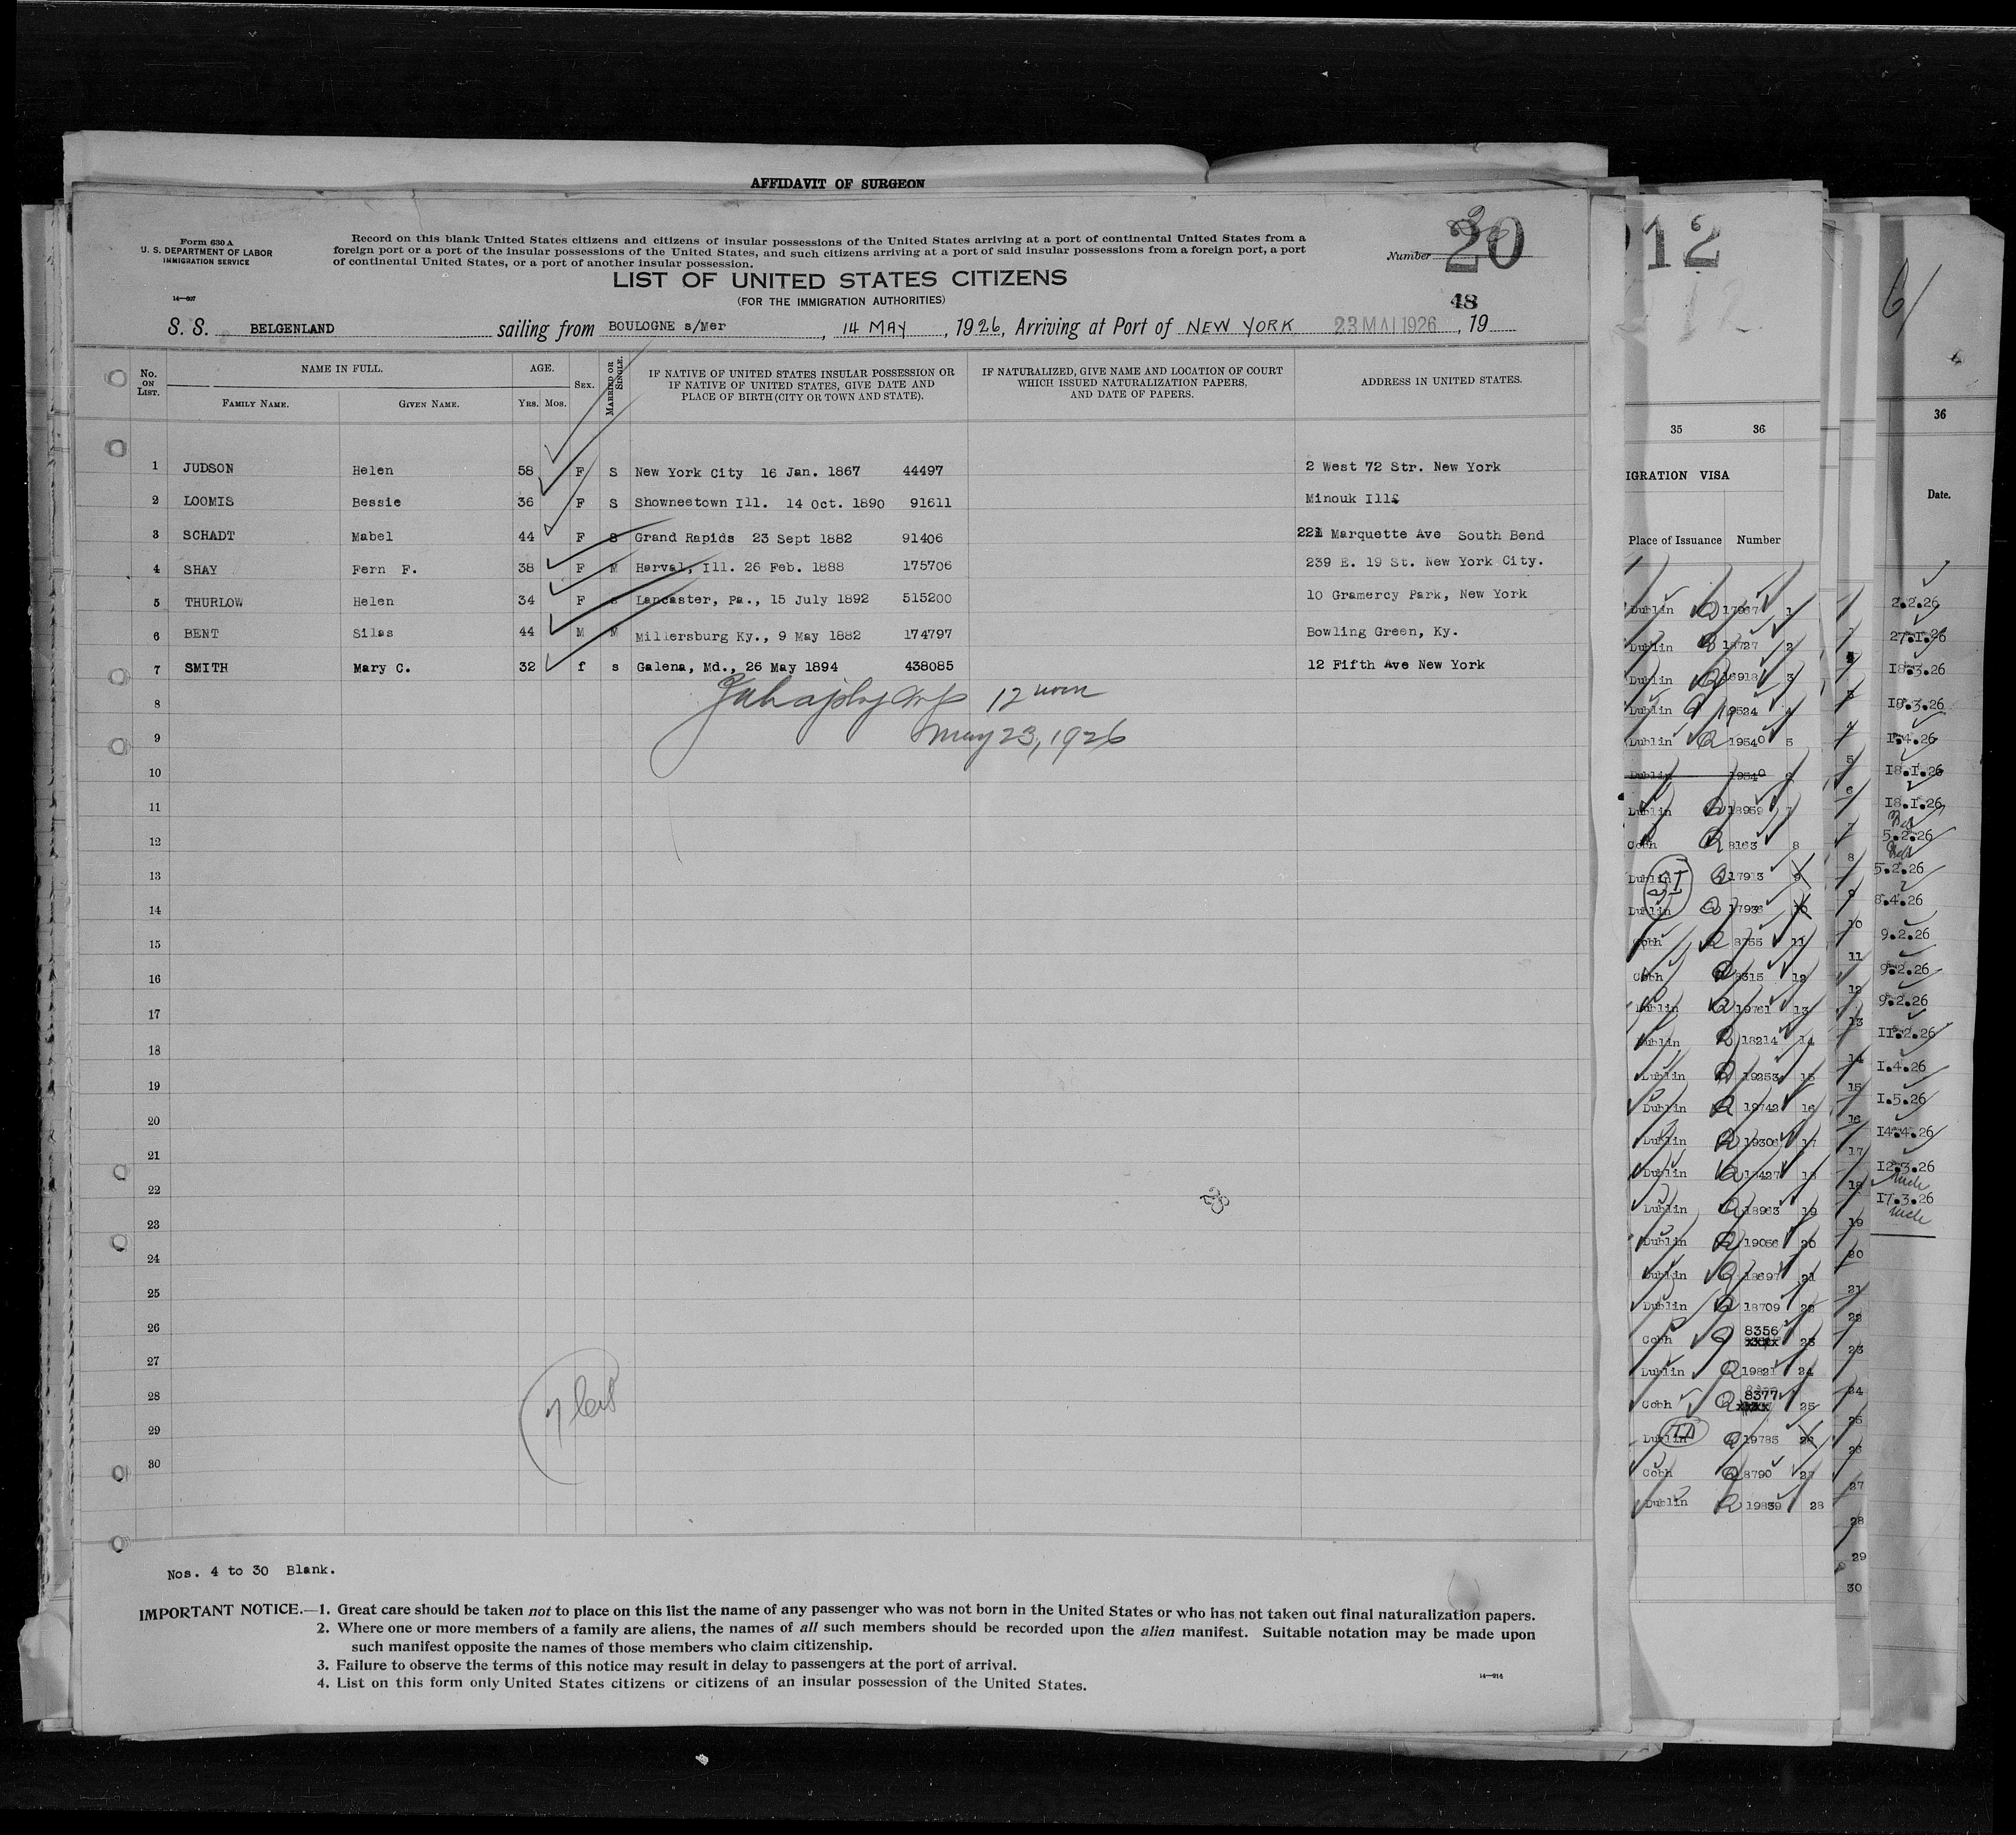 AFFIDAVIT OF SURGEON
Form 630 A
U. S. DEPARTMENT OF LABOR
IMMIGRATION SERVICE
Record on this blank United States citizens and citizens of insular possessions of the United States arriving at a port of continental United States from a
foreign port or a port of the insular possessions of the United States, and such citizens arriving at a port of said insular possessions from a foreign port, a port
of continental United States, or a port of another insular possession.
Number 20
LIST OF UNITED STATES CITIZENS
(FOR THE IMMIGRATION AUTHORITIES)
14—607
48
S. S. BELGENLAND sailing from BOULOGNE s/Mer, 14 MAY, 1926, Arriving at Port of NEW YORK 23 MAI 1926, 19
No. ON LIST.
NAME IN FULL.
FAMILY NAME. GIVEN NAME.
AGE.
YRS. MOS.
SEX.
MARRIED OR SINGLE.
IF NATIVE OF UNITED STATES INSULAR POSSESSION OR
IF NATIVE OF UNITED STATES, GIVE DATE AND
PLACE OF BIRTH (CITY OR TOWN AND STATE).
IF NATURALIZED, GIVE NAME AND LOCATION OF COURT
WHICH ISSUED NATURALIZATION PAPERS,
AND DATE OF PAPERS.
ADDRESS IN UNITED STATES.
1 JUDSON Helen 58 F S New York City 16 Jan. 1867 44497 2 West 72 Str. New York
2 LOOMIS Bessie 36 F S Showneetown Ill. 14 Oct. 1890 91611 Minouk Ill
3 SCHADT Mabel 44 F S Grand Rapids 23 Sept 1882 91406 221 Marquette Ave South Bend
4 SHAY Fern F. 38 F M Harval, Ill. 26 Feb. 1888 175706 239 E. 19 St. New York City.
5 THURLOW Helen 34 F s Lancaster, Pa., 15 July 1892 515200 10 Gramercy Park, New York
6 BENT Silas 44 M M Millersburg Ky., 9 May 1882 174797 Bowling Green, Ky.
7 SMITH Mary C. 32 f s Galena, Md., 26 May 1894 438085 12 Fifth Ave New York
8 12 noon
9 May 23, 1926
10
11
12
13
14
15
16
17
18
19
20
21
22
23
24
25
26
27
28
29
30
Nos. 4 to 30 Blank.
IMPORTANT NOTICE.—1. Great care should be taken not to place on this list the name of any passenger who was not born in the United States or who has not taken out final naturalization papers.
2. Where one or more members of a family are aliens, the names of all such members should be recorded upon the alien manifest. Suitable notation may be made upon
such manifest opposite the names of those members who claim citizenship.
3. Failure to observe the terms of this notice may result in delay to passengers at the port of arrival.
4. List on this form only United States citizens or citizens of an insular possession of the United States.
14—216
12
35 36
IGRATION VISA
Place of Issuance Number
Dublin 17967 1
Dublin 18727 2
Dublin 16918 3
Dublin 19524 4
Dublin 19540 5
Dublin 19540 6
Dublin 18959 7
Cobh 8163 8
Dublin 17913 9
Dublin 17936 10
Cobh 8755 11
Cobh 8315 12
Dublin 19761 13
Dublin 18214 14
Dublin 19253 15
Dublin 19742 16
Dublin 19306 17
Dublin 18
Dublin 18963 19
Dublin 19056 20
Dublin 18697 21
Dublin 18709 22
Cobh 8356 23
Dublin 19821 24
Cobh 8377 25
Dublin 19785 26
Cobh 8790 27
Dublin 19839 28
36
Date.
2.2.26
27.1.26
18.3.26
18.3.26
1.4.26
18.1.26
18.1.26
5.2.26
5.2.26
8.4.26
9.2.26
9.2.26
9.2.26
11.2.26
1.4.26
1.5.26
14.4.26
12.3.26
17.3.26